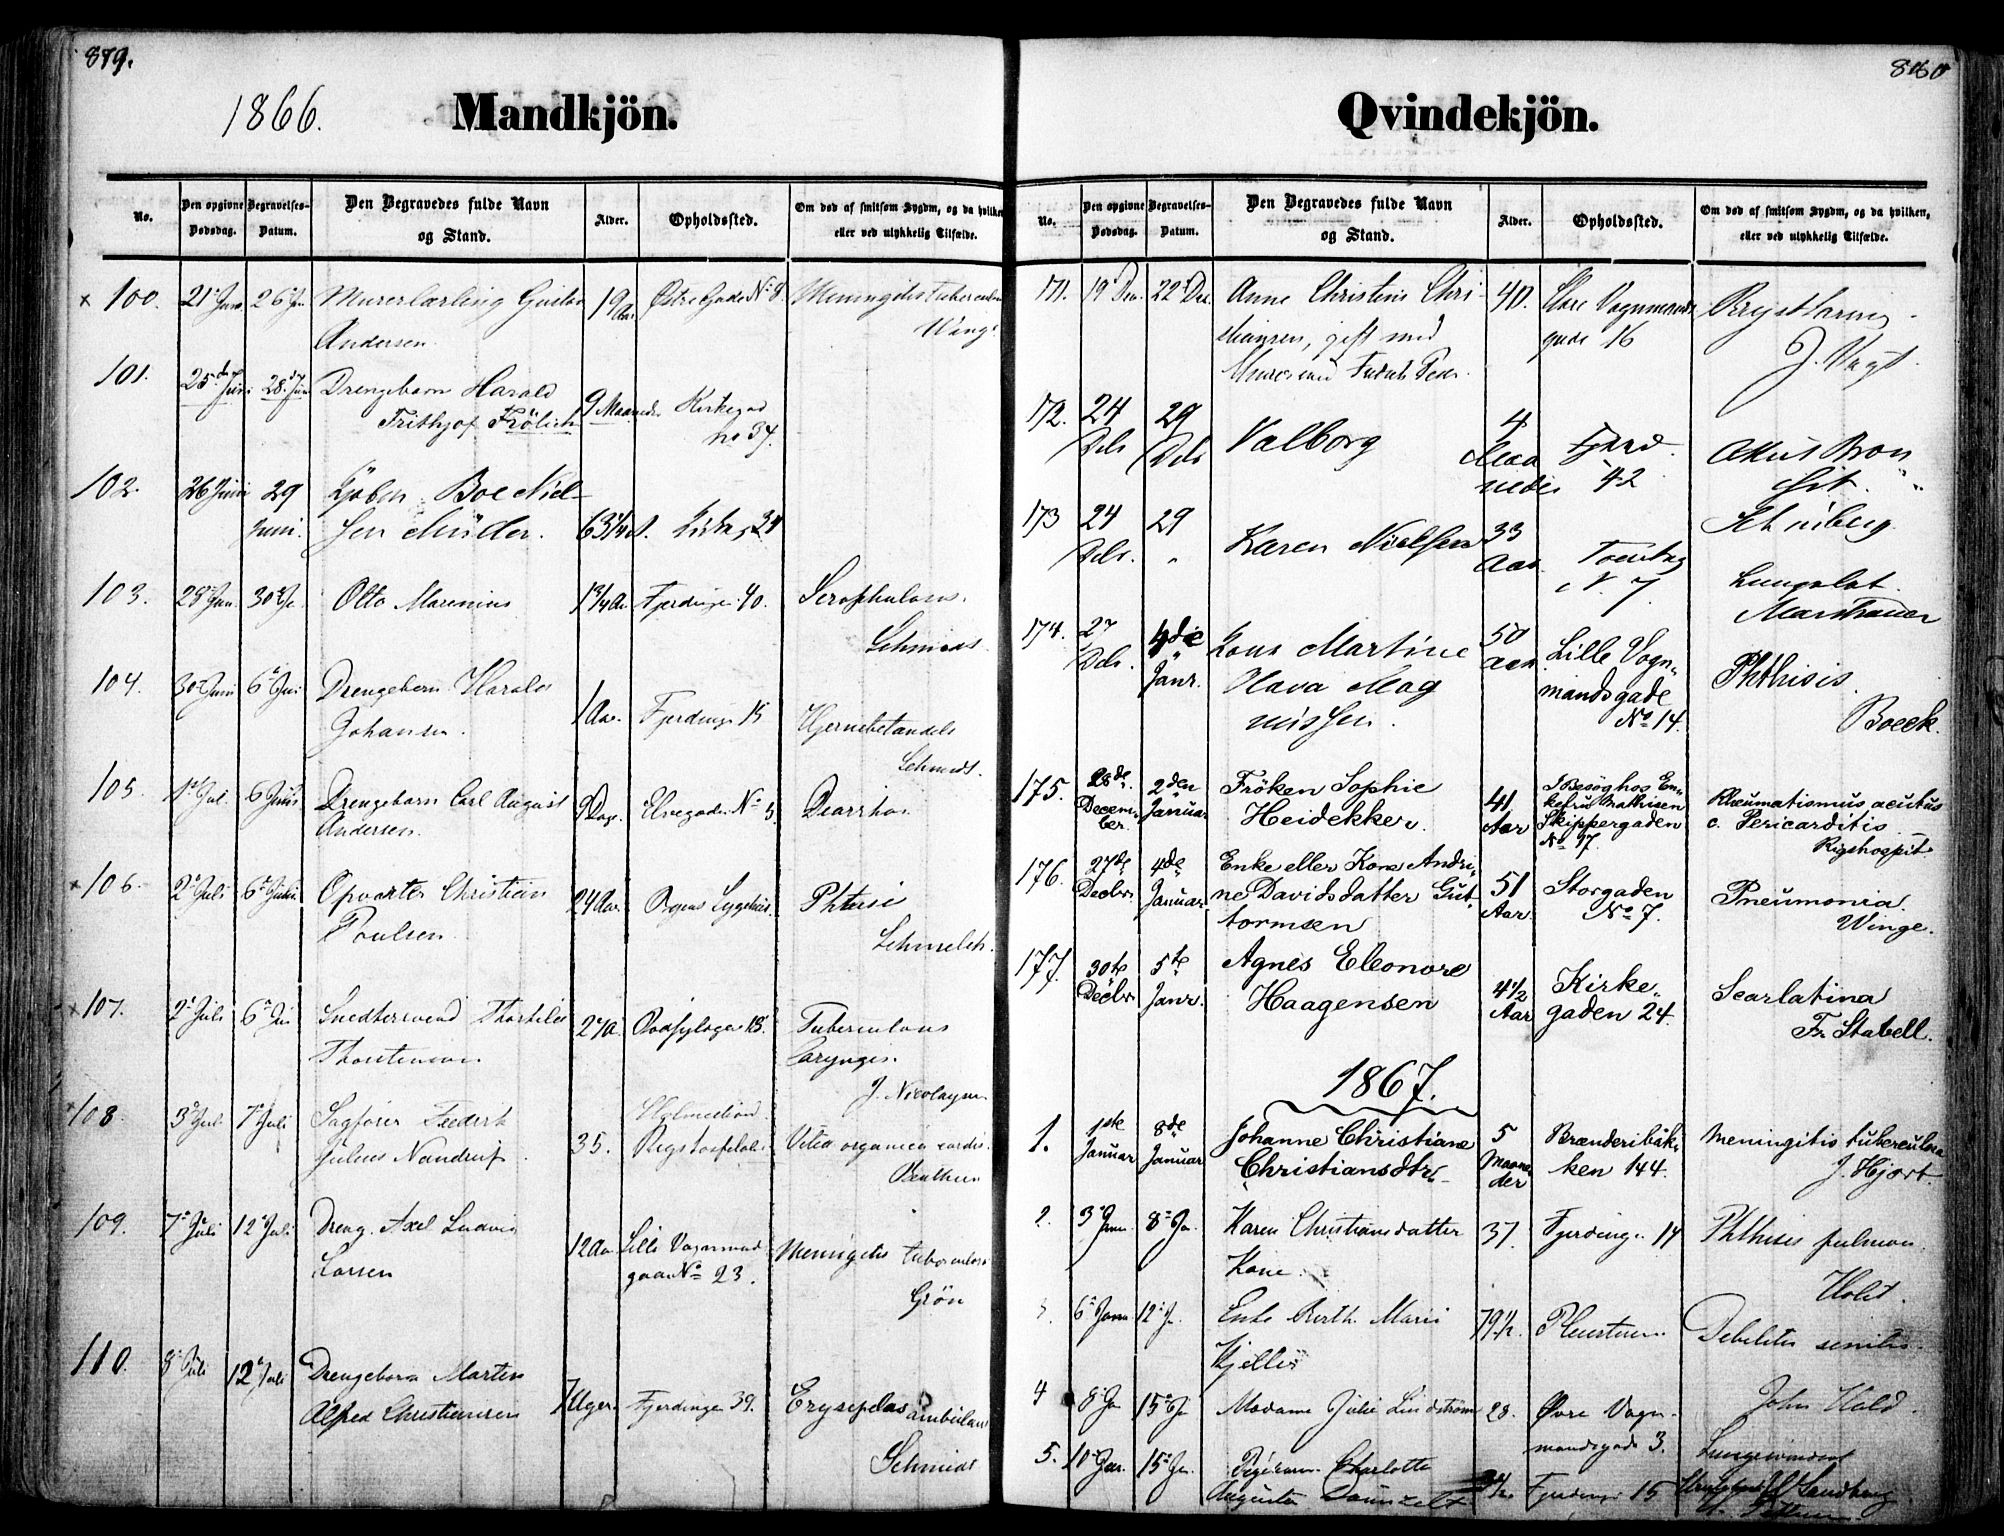 879.
1866.
Mandkjön.
No.
Den opgivne Dødsdag.
Begravelses-Datum.
Den Begravedes fulde Navn og Stand.
Alder.
Opholdssted.
Om død af smitsom Sygdom, og da hvilken, eller ved ulykkelig Tilfælde.
100. 21 Juni 26 Jun Murerlærling Gustav Andersen 19 Aar Østre Gade No 8 Meningitis tubercul Winge
101. 25de Juni 28de Juni Drengebarn Harald Frithjof Frölich 9 Maaneder Kirkegad no 34.
102. 26 Juni 29 Juni Boe Nielsen Müller. 63 1/4 A. Kirkeg 24
103. 28 Jun. 30 Otto Marenius 1 3/4 Aar Fjerdingen 40. Scrophulosis. Schmidt.
104. 30 Juni 6 Juli Drengebarn Harald Johansen. 1 Aar. Fjerdinge 15 Hjernebetændels Schmidt.
105. 1 Jul. 6 Juli Drengebarn Carl August Andersen. 9 Dage. Elvegaden No 5 Diarrhoe
106. 2 Juli 6 Juli Opvarter Christian Poulsen 24 Aar. Byens Sygehus. Phtisis
107. 2 Juli 6 Juli Snedkersvend Thorkild Thorstensen 27 A. 18. Tuberculosis laryngis. J. Nicolaysen
108. 3 Jul 7 Juli Sagfører Frederik Julius Nandrup. 35. Rigshospitalet Vitia organica cordis. Benthen
109. 7 Juli 12 Juli Dreng. Axel Ludvig Larsen 12 Aar Lille Vognmandgaden No 23. Meningitis tuberculosa Grön
110. 8 Juli 12 Juli Drengebarn Martin Alfred Christiansen 7 Uger. Fjerdingen 39. Erysipelas ambulans Schmidt
880
Qvindekjön.
No.
Den opgivne Dødsdag.
Begravelses-Datum.
Den Begravedes fulde Navn og Stand.
Alder.
Opholdssted.
Om død af smitsom Sygdom, og da hvilken, eller ved ulykkelig Tilfælde.
171. 19 Dec. 22 Dec. Anne Christine Christiansen, gift med Murersvend Ped. 40. Store Vognmandsgade 16 J. Vogt.
172. 24 Dcb 29 Dcb Valborg 4 Maaneder Fjerd. 42 Akut Bronkit.
173 24 Dcb. 29 " Karen Nielsen 33 Aar. Torvbag N. 7 Lungebet.
174. 27 Dcb. 4de Janr. Kone Martine Olava Magnussen. 50 Aar. Lille Vognmandsgade No 14. Phthisis. Boeck.
175. 28de December. 2den Januar Fröken Sophie Heidekker. 41 Aar I Besøg hos Enkefru Mathisen Skippergaden No 17. Rheumatismus acutus c. Pericarditis Rigshospit
176. 27de Decbr. 4de Januar Enke eller Kone Andrine Davidsdatter Guttormsen 51 Aar. Storgaden No 7. Pneumonia. Winge.
177. 30te Decbr. 5te Janr. Agnes Eleonore Haagensen 4 1/2 Aar Kirkegaden 24. Scarlatina Fr. Stabell.
1867.
1. 1ste Januar 8de Januar Johanne Christiane Christiansdtr 5 Maaneder Brænderibakken 144. Meningitis tuberculosa J. Hjort.
2. 3 Jan. 8 Ja Karen Christiansdatter Kone. 37. Fjerdinge 14 Phthisis pulmon. Holst.
3. 6 Janu 12 Ja Enke Berth. Marie Kjelles 79 1/2. Debilitas senilis. John Hald.
4 8 Ja 15 Ja Madame Julie Lindström 28. Øvre Vognmandsgade 3.
5. 10 Jar. 15 Ja. Pigebarn Charlotte Augusta Fjerdinge 15 Sandberg